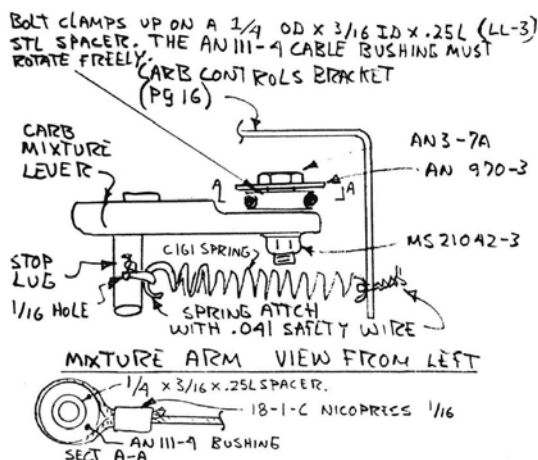 BOLT CLAMPS UP ON A 1/4 OD X 3/16 ID X .25L (LL-3)
STL SPACER. THE AN 111-4 CABLE BUSHING MUST
ROTATE FREELY.
CARB CONTROLS BRACKET
(PG 16)
CARB
MIXTURE
LEVER
AN3-7A
AN 970-3
A
A
MS21042-3
C161 SPRING
STOP
LUG
1/16 HOLE
SPRING ATTCH
WITH .041 SAFETY WIRE
MIXTURE ARM VIEW FROM LEFT
1/4 X 3/16 X .25L SPACER.
18-1-C NICOPRESS 1/16
AN 111-4 BUSHING
SECT A-A